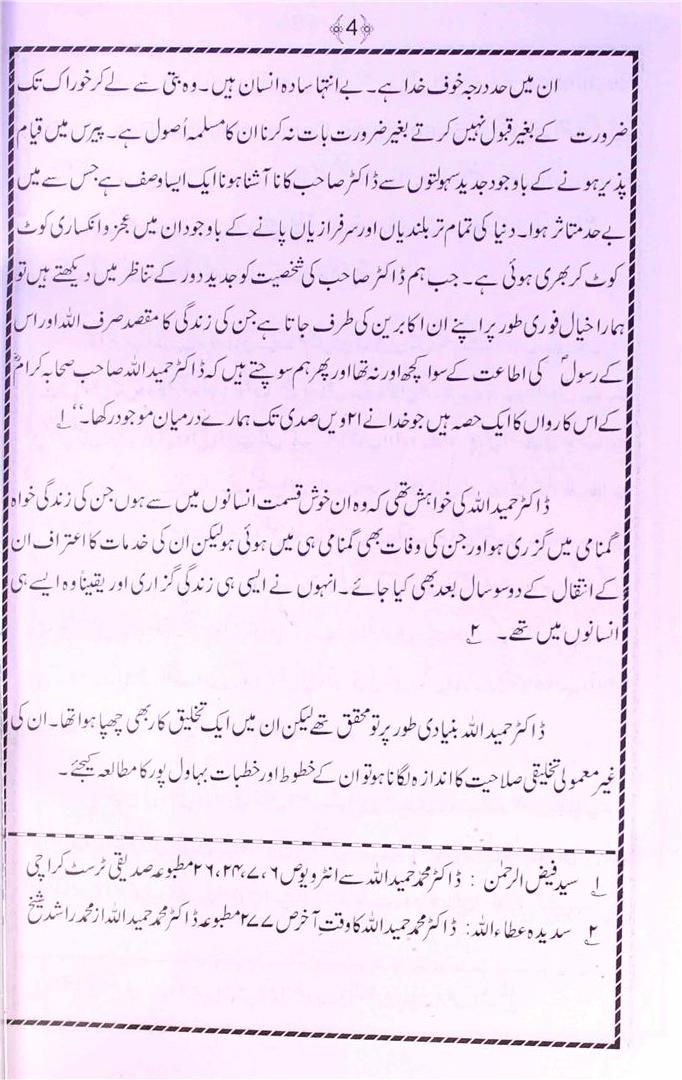 4
ان میں حد درجہ خوف خدا ہے۔ بے انتہا سادہ انسان ہیں۔ وہ بتی سے لے کر خوراک تک
ضرورت کے بغیر قبول نہیں کرتے بغیر ضرورت بات نہ کرنا ان کا مسلمہ اُصول ہے۔ پیرس میں قیام
پذیر ہونے کے باوجود جدید سہولتوں سے ڈاکٹر صاحب کا نا آشنا ہونا ایک ایسا وصف ہے جس سے میں
بے حد متاثر ہوا۔ دنیا کی تمام تر بلندیاں اور سرفرازیاں پانے کے باوجود ان میں عجز و انکساری کوٹ
کوٹ کر بھری ہوئی ہے۔ جب ہم ڈاکٹر صاحب کی شخصیت کو جدید دور کے تناظر میں دیکھتے ہیں تو
ہمارا خیال فوری طور پر اپنے ان اکابرین کی طرف جاتا ہے جن کی زندگی کا مقصد صرف اللہ اور اس
کے رسولؐ کی اطاعت کے سوا کچھ اور نہ تھا اور پھر ہم سوچتے ہیں کہ ڈاکٹر حمید اللہ صاحب صحابہ کرامؓ
کے اس کارواں کا ایک حصہ ہیں جو خدا نے ۲۱ ویں صدی تک ہمارے درمیان موجود رکھا۔“ ۱؂
ڈاکٹر حمید اللہ کی خواہش تھی کہ وہ ان خوش قسمت انسانوں میں سے ہوں جن کی زندگی خواہ
گمنامی میں گزری ہو اور جن کی وفات بھی گمنامی ہی میں ہوئی ہو لیکن ان کی خدمات کا اعتراف ان
کے انتقال کے دو سو سال بعد بھی کیا جائے۔ انہوں نے ایسی ہی زندگی گزاری اور یقیناً وہ ایسے ہی
انسانوں میں تھے۔ ۲؂
ڈاکٹر حمید اللہ بنیادی طور پر تو محقق تھے لیکن ان میں ایک تخلیق کار بھی چھپا ہوا تھا۔ ان کی
غیر معمولی تخلیقی صلاحیت کا اندازہ لگانا ہو تو ان کے خطوط اور خطبات بہاول پور کا مطالعہ کیجئے۔
۱؂ سید فیض الرحمٰن : ڈاکٹر محمد حمید اللہ سے انٹرویو ص ۶، ۷، ۲۴، ۲۶ مطبوعہ صدیقی ٹرسٹ کراچی
۲؂ سدیدہ عطاء اللہ: ڈاکٹر محمد حمید اللہ کا وقتِ آخر ص ۲۷۷ مطبوعہ ڈاکٹر محمد حمید اللہ از محمد راشد شیخ